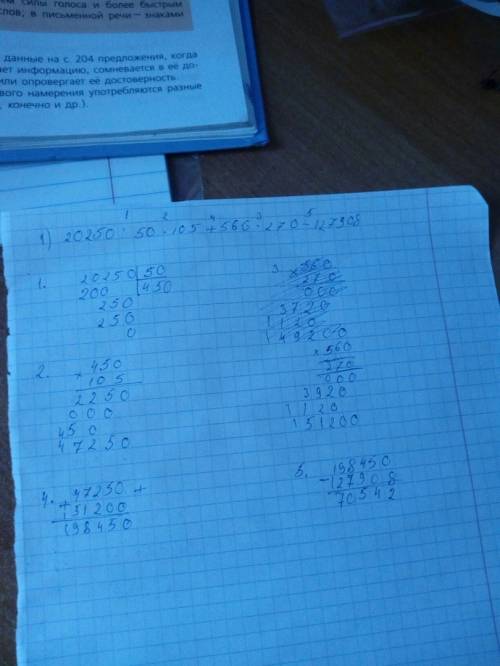 ем силы голоса и более быстрым
слов; в письменной речи – знаками
данные на с. 204 предложения, когда
ает информацию, сомневается в её до-
или опровергает её достоверность.
вого намерения употребляются разные
, конечно и др.).
1 2 4 3 5
1) 20250 : 50 · 105 + 560 · 270 − 127908
1. 20250 | 50
200 | 450
250
250
0
2. × 450
105
2250
000
450
47250
4. + 47250 +
151200
198450
3. × 560
270
000
3720
1120
149200
× 560
270
000
3920
1120
151200
5. − 198450
127908
70542